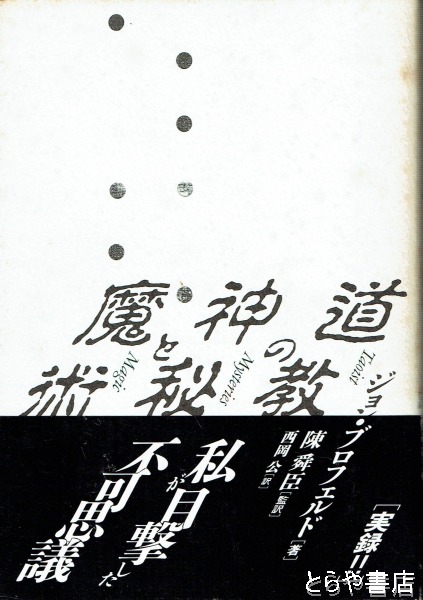 道教の
神秘と
魔術
Taoist
Mysteries
Magic
ジョン・ブロフェルド[著]
陳舜臣[監訳]
西岡公[訳]
[実録!!]
私が目撃した
不可思議
とらや書店